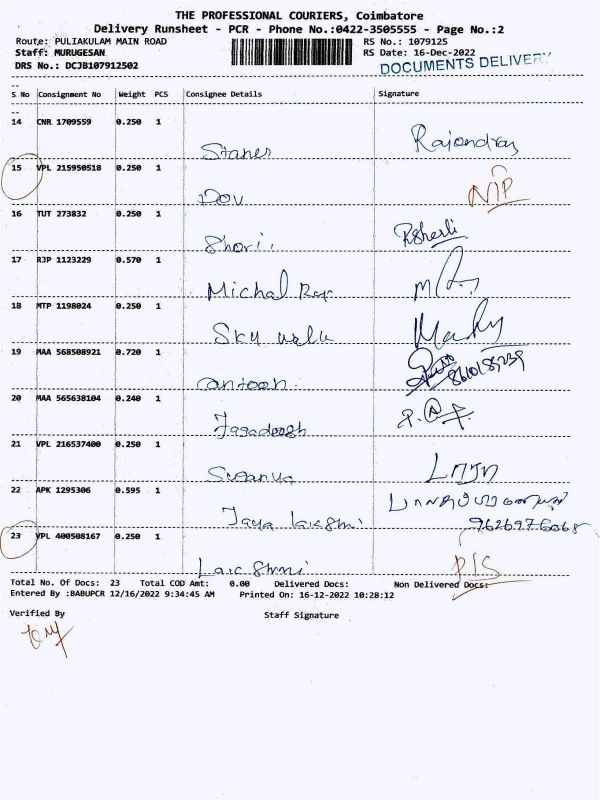 THE PROFESSIONAL COURIERS, Coimbatore
Delivery Runsheet - PCR - Phone No.:0422-3505555 - Page No.:2
Route: PULIAKULAM MAIN ROAD RS No.: 1079125
Staff: MURUGESAN RS Date: 16-Dec-2022
DRS No.: DCJB107912502 DOCUMENTS DELIVERY
S No Consignment No Weight PCS Consignee Details Signature
14 CNR 1709559 0.250 1
Stanes Rajendran
15 VPL 215950518 0.250 1
Dov N/P
16 TUT 273832 0.250 1
17 RJP 1123229 0.570 1
Michal Raj
18 MTP 1198024 0.250 1
Sky
19 MAA 568508921 0.720 1
20 MAA 565638104 0.240 1
Jagadeesh
21 VPL 216537400 0.250 1
22 APK 1295306 0.595 1
Jaya lakshmi
9626976068
23 VPL 400508167 0.250 1
Total No. Of Docs: 23 Total COD Amt: 0.00 Delivered Docs: Non Delivered Docs:
Entered By :BABUPCR 12/16/2022 9:34:45 AM Printed On: 16-12-2022 10:28:12
Verified By Staff Signature